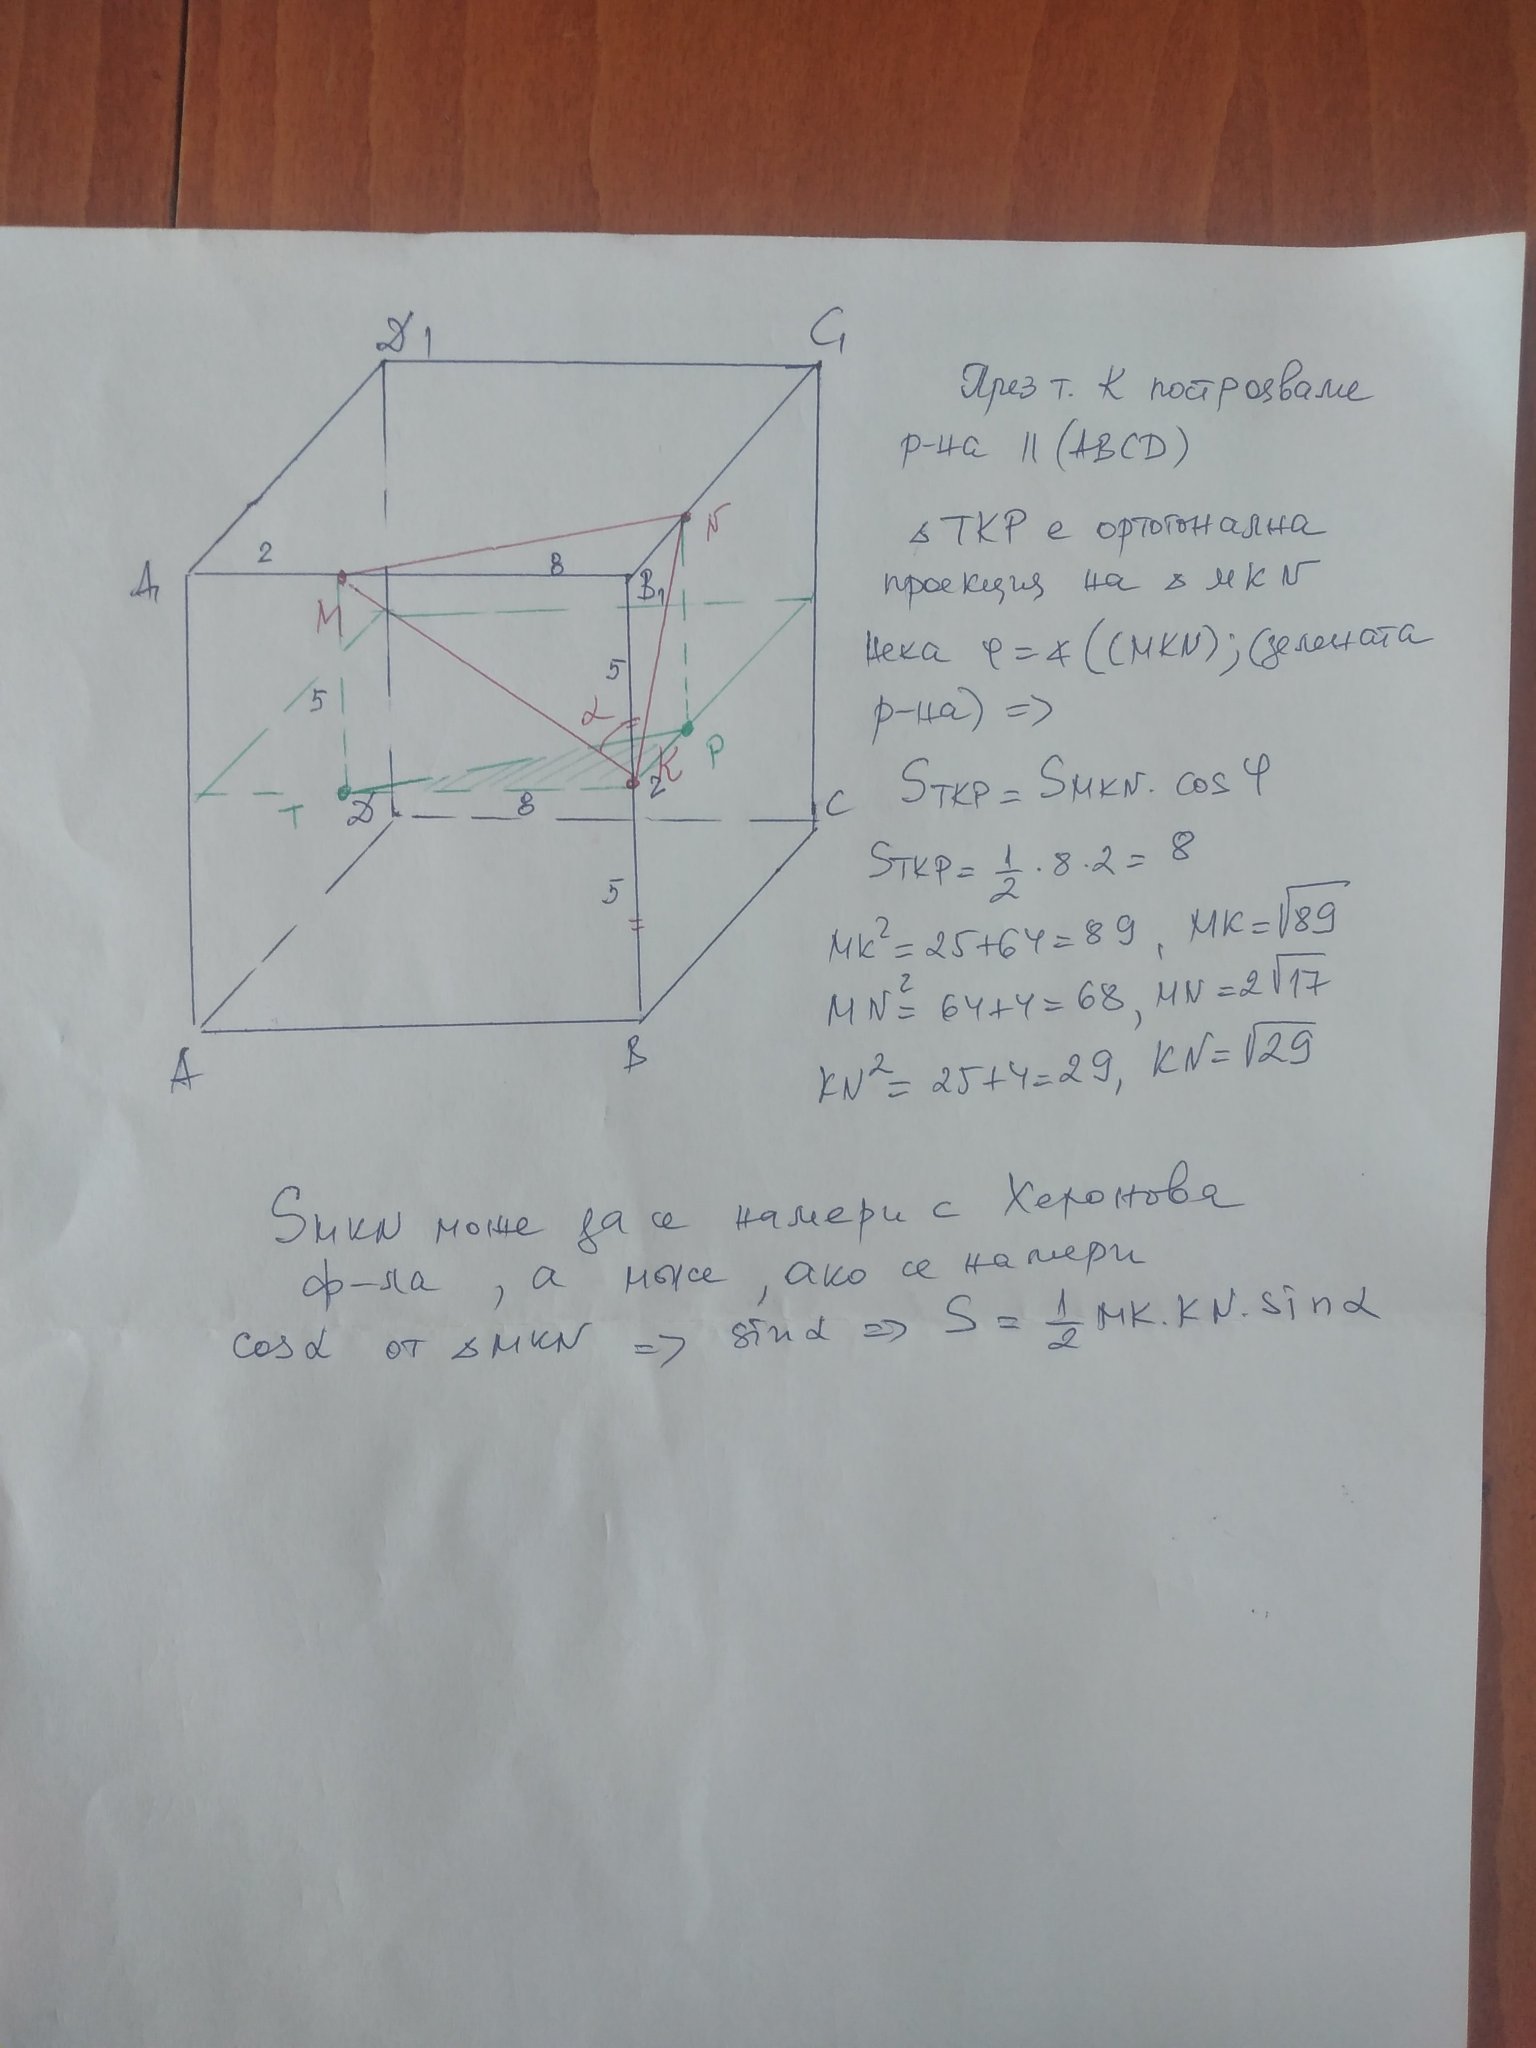 D1
C1
A1
2
M
8
B1
N
5
5
α
K
P
T
D
8
2
C
5
A
B
През т. K построяваме
р-на || (ABCD)
△ TKP е ортогонална
проекция на △ MKN
Нека φ = ∢ ((MKN); (зелената
р-на) =>
STKP = SMKN. cos φ
STKP = 1/2 · 8 · 2 = 8
MK² = 25+64 = 89, MK = √89
MN² = 64+4 = 68, MN = 2√17
KN² = 25+4 = 29, KN = √29
SMKN може да се намери с Херонова
ф-ла, а може, ако се намери
cosα от △ MKN => sinα => S = 1/2 MK. KN. sinα